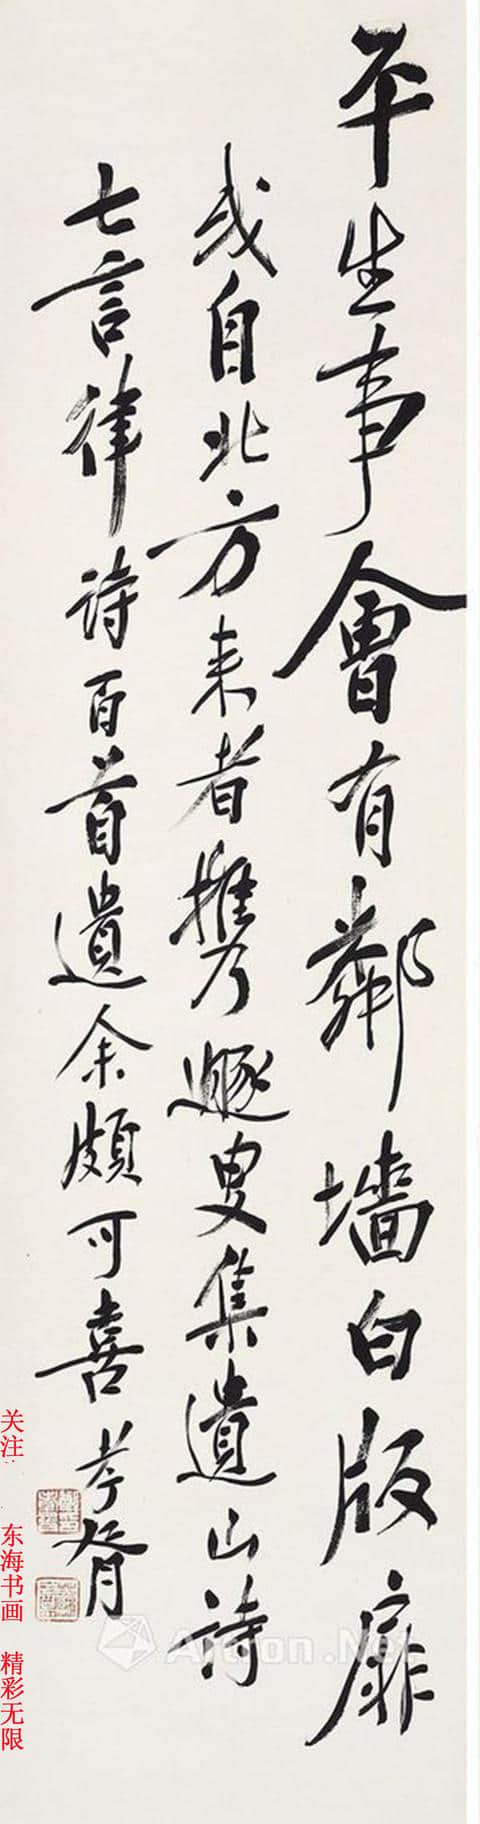 平生事會有鄰墻白版扉
或自北方来者攜乃遯叟集遺山詩
七言律詩百首遺余頗可喜 孝胥
关注
东海书画 精彩无限
Artron.Net